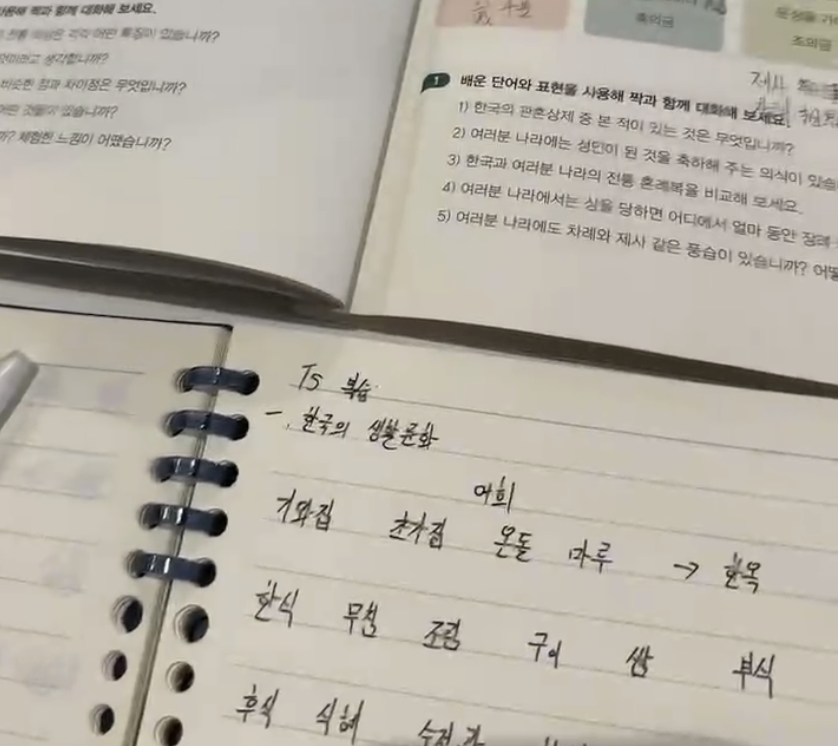 사용해 짝과 함께 대화해 보세요.
전통 의상은 각각 어떤 특징이 있습니까?
생각합니까?
비슷한 점과 차이점은 무엇입니까?
어떤 것들이 있습니까?
체험한 느낌이 어땠습니까?
축의금
조의금
제사
1 배운 단어와 표현을 사용해 짝과 함께 대화해 보세요.
1) 한국의 관혼상제 중 본 적이 있는 것은 무엇입니까?
2) 여러분 나라에는 성인이 된 것을 축하해 주는 의식이 있습
3) 한국과 여러분 나라의 전통 혼례복을 비교해 보세요.
4) 여러분 나라에서는 상을 당하면 어디에서 얼마 동안 장례
5) 여러분 나라에도 차례와 제사 같은 풍습이 있습니까? 어떻
T5 복습
一. 한국의 생활문화
여희
기와집 초가집 온돌 마루 → 한옥
한식 무침 조림 구이 쌈 부식
후식 식혜 수정과